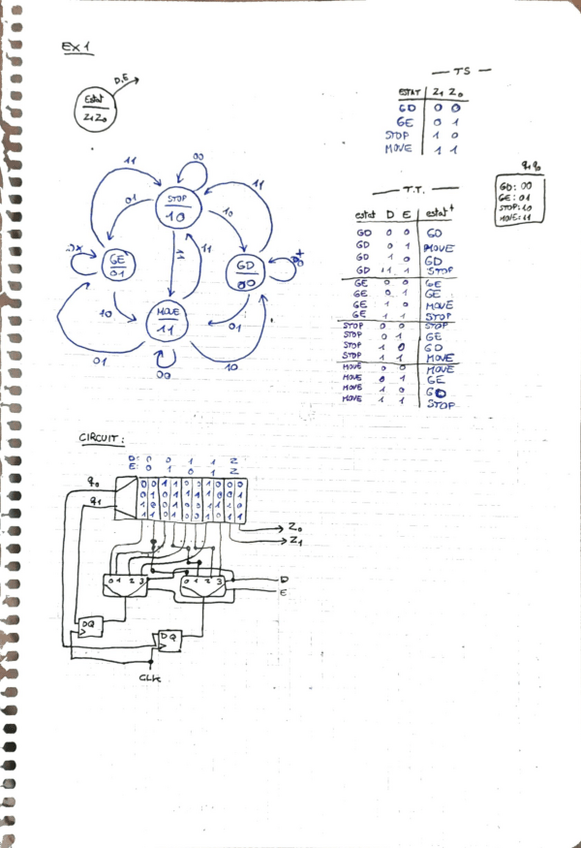 EX 1
D,E
Estat
Z1Z0
— TS —
ESTAT Z1 Z0
GD 0 0
GE 0 1
STOP 1 0
MOVE 1 1
q1q0
GD: 00
GE: 01
STOP: 10
MOVE: 11
— T.T. —
estat D E estat+
GD 0 0 GD
GD 0 1 MOVE
GD 1 0 GD
GD 1 1 STOP
GE 0 0 GE
GE 0 1 GE
GE 1 0 MOVE
GE 1 1 STOP
STOP 0 0 STOP
STOP 0 1 GE
STOP 1 0 GD
STOP 1 1 MOVE
MOVE 0 0 MOVE
MOVE 0 1 GE
MOVE 1 0 GD
MOVE 1 1 STOP
00
11
11
STOP
10
01
10
11
11
0x
GE
01
GD
00
MOVE
11
10
01
01
10
00
CIRCUIT:
D: 0 0 1 1 Z
E: 0 1 0 1 Z
q0
q1
Z0
Z1
0 1 2 3
0 1 2 3
D
E
D Q
D Q
CLK